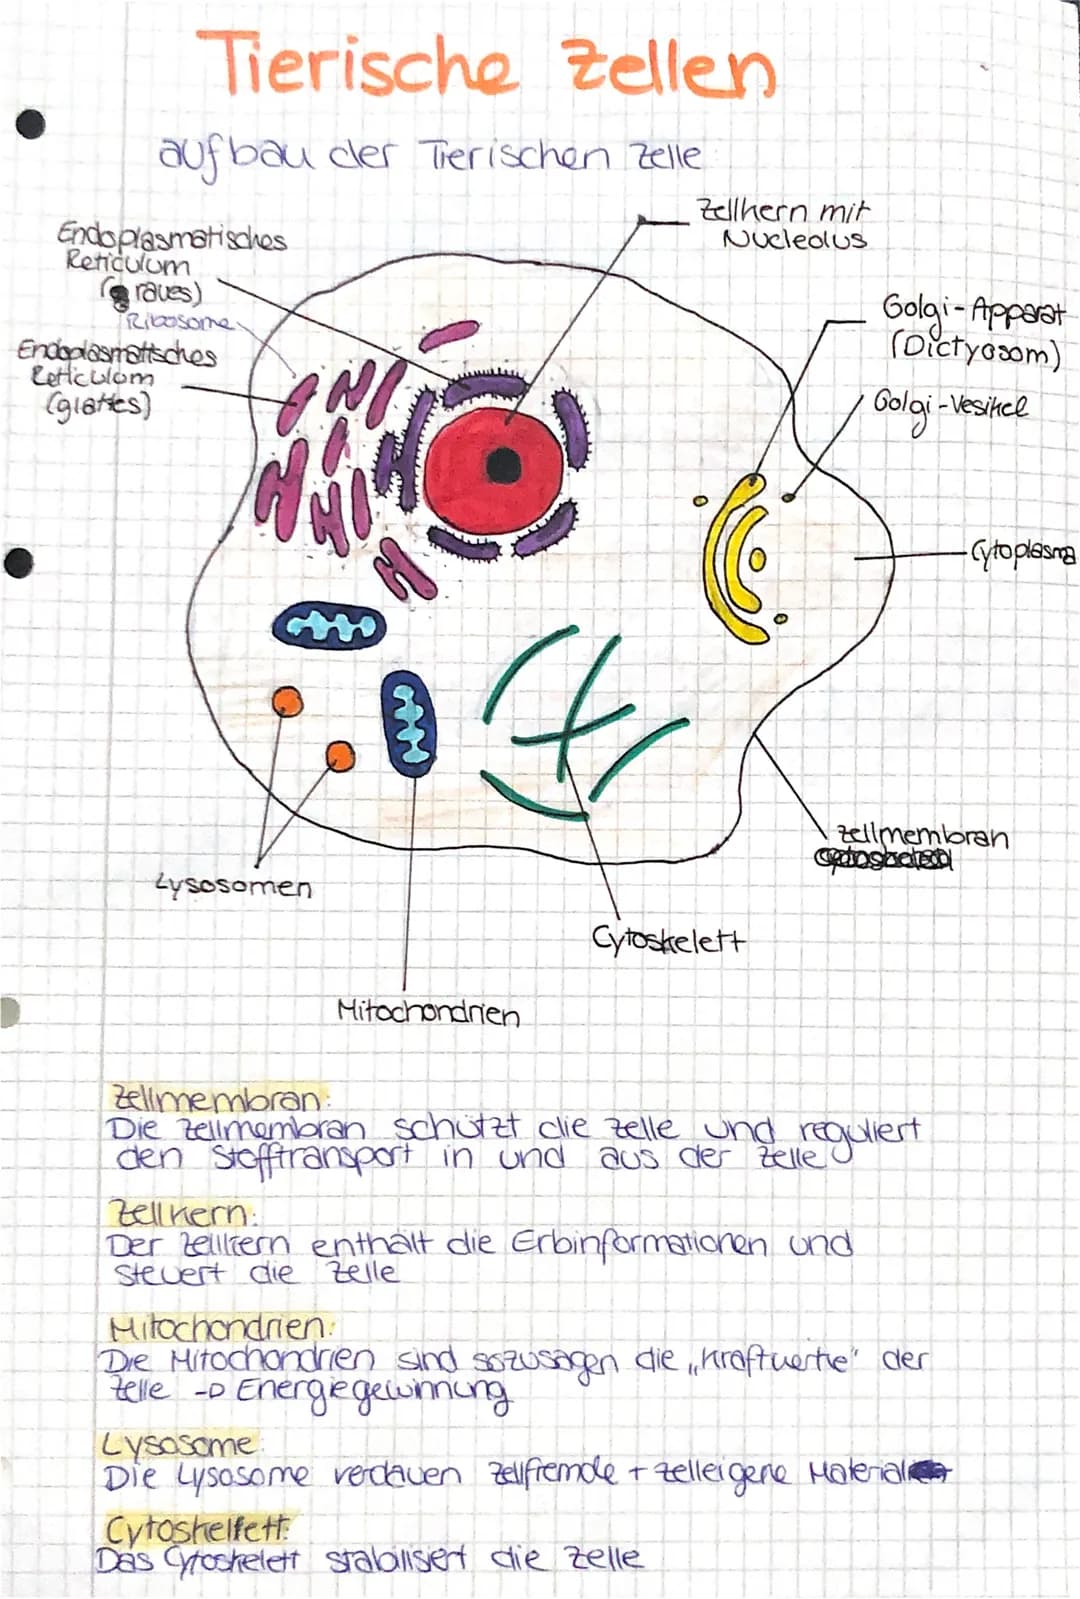 Tierische Zellen
aufbau der Tierischen Zelle
Zellkern mit
Nucleolus
Endoplasmatisches
Reticulum
(raues)
Ribosome
Endoplasmatisches
Reticulum
(glattes)
Golgi-Apparat
(Dictyosom)
Golgi-Vesikel
Cytoplasma
Zellmembran
Lysosomen
Cytoskelett
Mitochondrien
Zellmembran:
Die Zellmembran schützt die Zelle und reguliert
den Stofftransport in und aus der Zelle
Zellkern:
Der Zellkern enthält die Erbinformationen und
steuert die Zelle
Mitochondrien:
Die Mitochondrien sind sozusagen die „Kraftwerke" der
Zelle → Energiegewinnung
Lysosome:
Die Lysosome verdauen zellfremde + zelleigene Material
Cytoskellett:
Das Cytoskelett stabilisert die Zelle